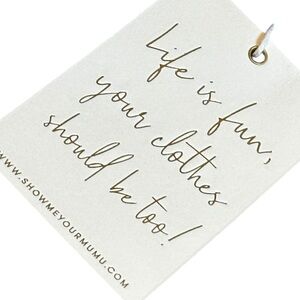 Life is fun,
your clothes
should be too!
WWW.SHOWMEYOURMUMU.COM